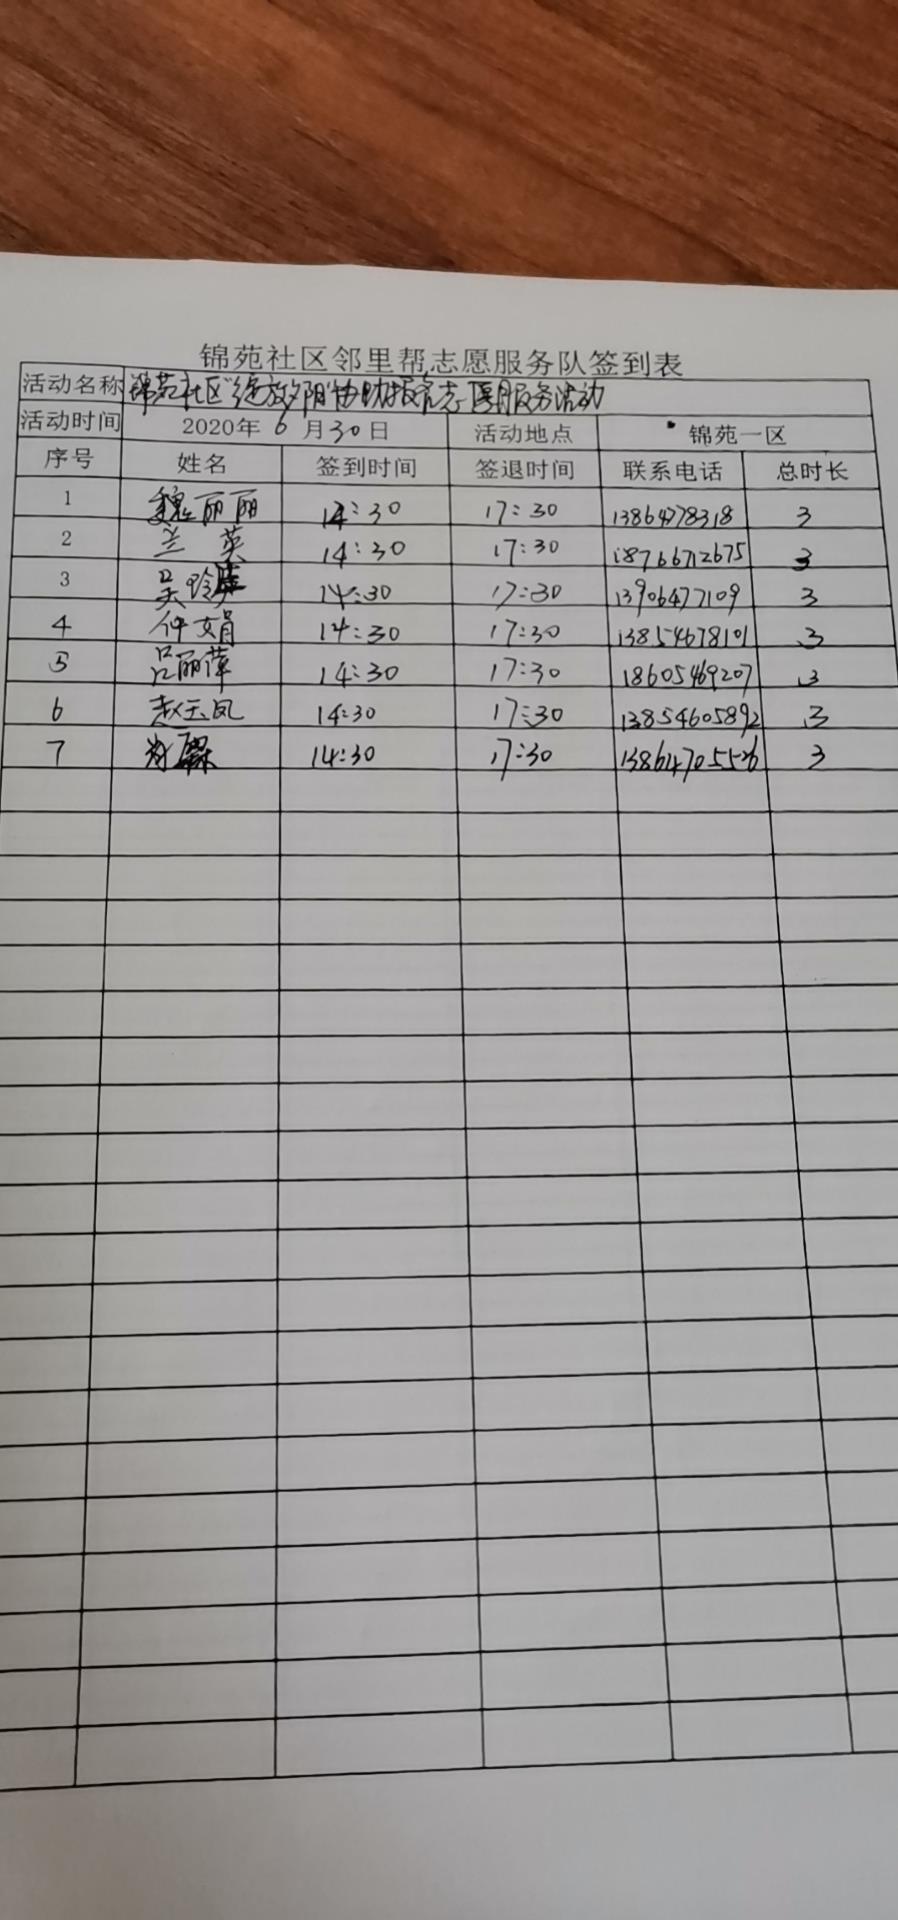 锦苑社区邻里帮志愿服务队签到表
活动名称 锦苑社区"绽放夕阳"协助 志愿服务活动
活动时间 2020年 6 月 30 日 活动地点 锦苑一区
序号 姓名 签到时间 签退时间 联系电话 总时长
1 魏丽丽 14:30 17:30 13864778318 3
2 兰英 14:30 17:30 18766712675 3
3 吴玲 14:30 17:30 13906477109 3
4 仲文娟 14:30 17:30 13854678101 3
5 吕丽萍 14:30 17:30 18605469207 3
6 赵玉凤 14:30 17:30 13854605892 3
7 14:30 17:30 13864705526 3